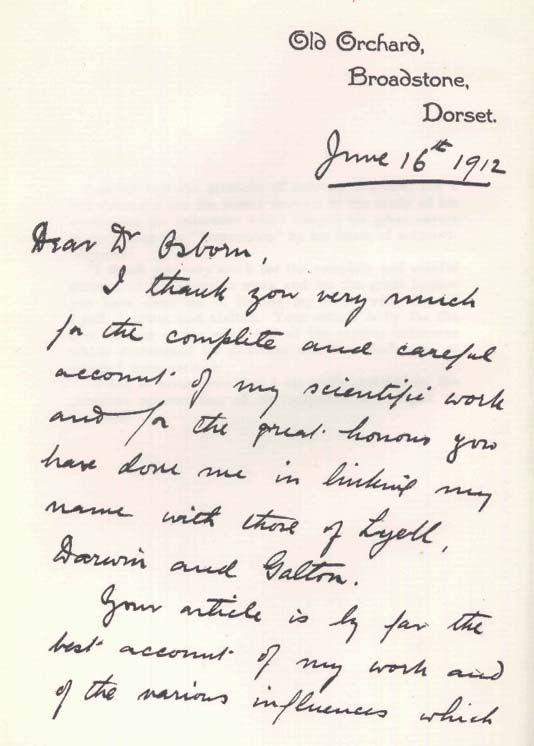 Old Orchard,
Broadstone,
Dorset.
June 16th 1912
Dear Dr Osborn,
I thank you very much
for the complete and careful
account of my scientific work
and for the great honour you
have done me in linking my
name with those of Lyell,
Darwin and Galton.
Your article is by far the
best account of my work and
of the various influences which